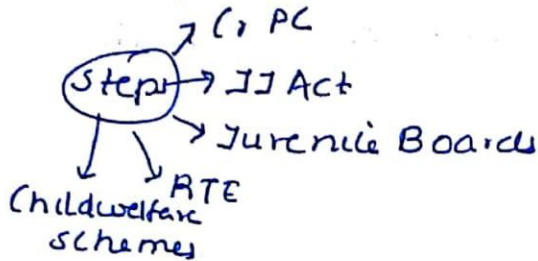 Cr PC
Steps
JJ Act
Juvenile Boards
RTE
Childwelfare
schemes